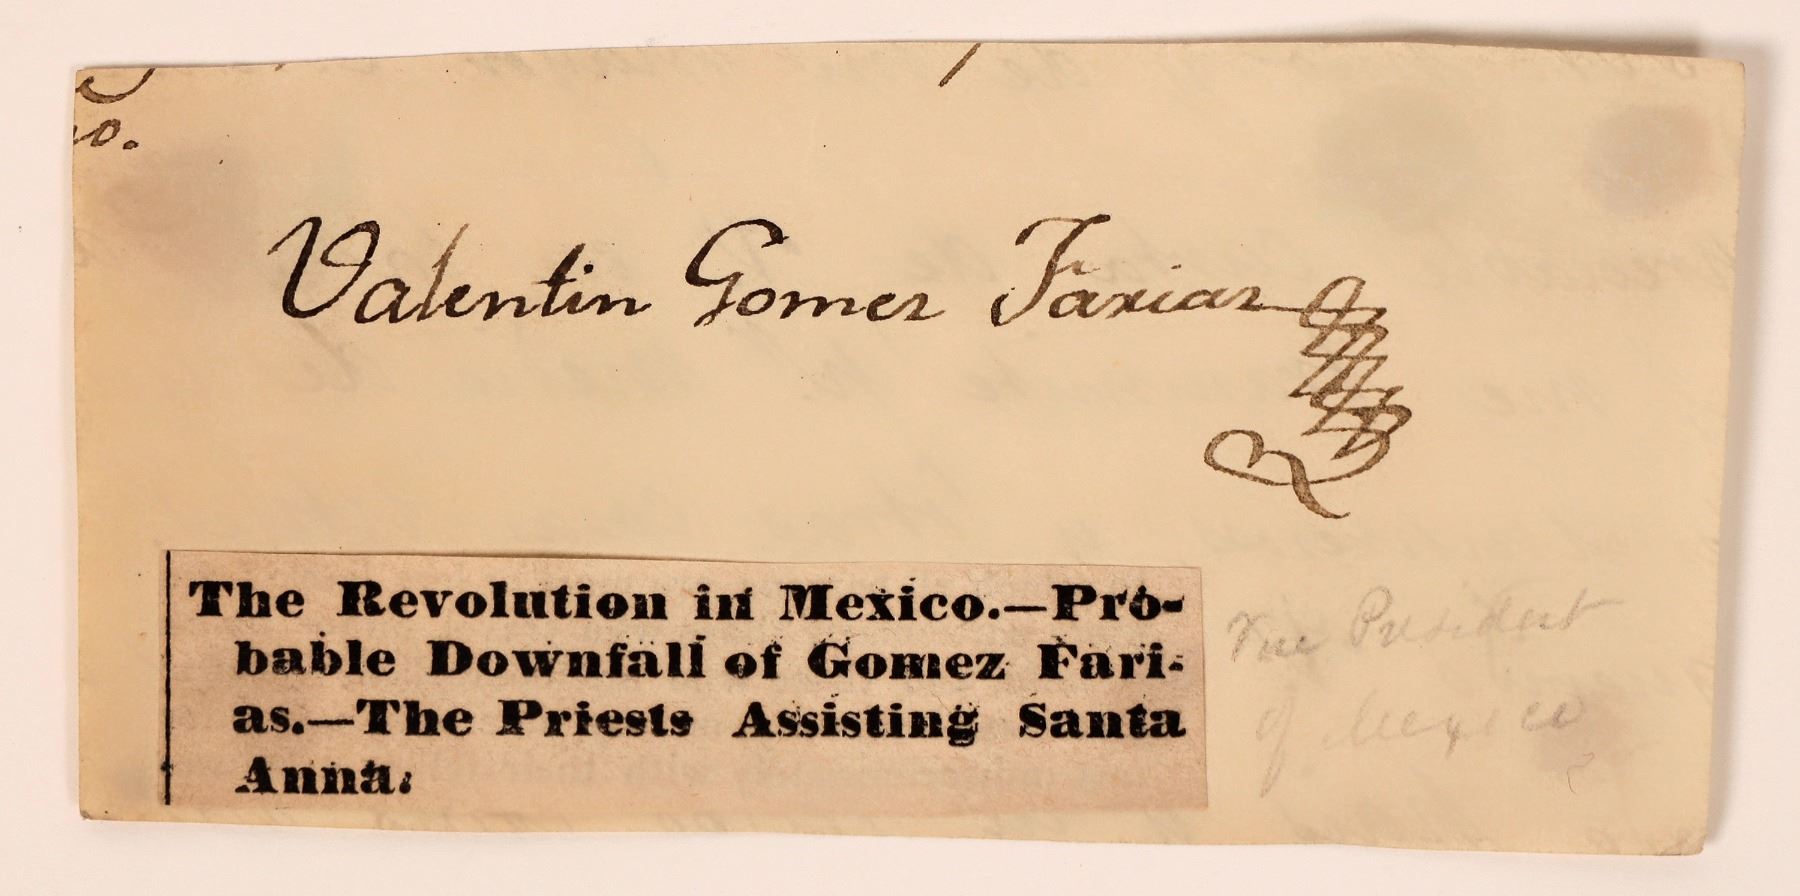 o.
Valentin Gomez Farias
The Revolution in Mexico.—Pro-
bable Downfall of Gomez Fari-
as.—The Priests Assisting Santa
Anna.
Vice President
of Mexico